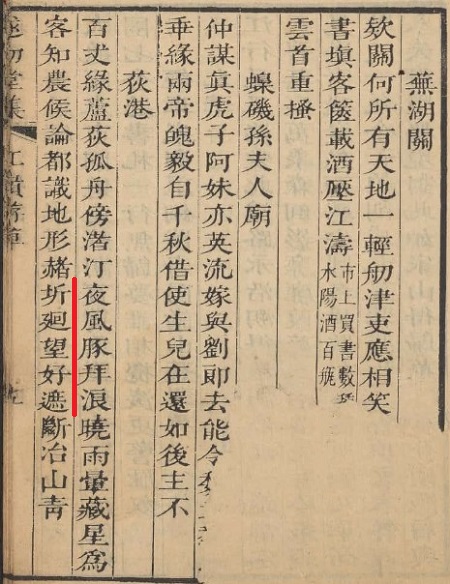 蕪湖關
欵關何所有天地一輕舠津吏應相笑
書塡客篋載酒壓江濤市上買書數
水陽酒百瓶
雲首重搔
蟂磯孫夫人廟
仲謀眞虎子阿妹亦英流嫁與劉即去能令
垂緣兩帝魄毅自千秋借使生兒在還如後主不
荻港
百丈緣蘆荻孤舟傍濳汀夜風豚拜浪曉雨暈藏星為
客知農候論都識地形赭圻廻望好遮斷冶山青
初堂集 江嶺游草